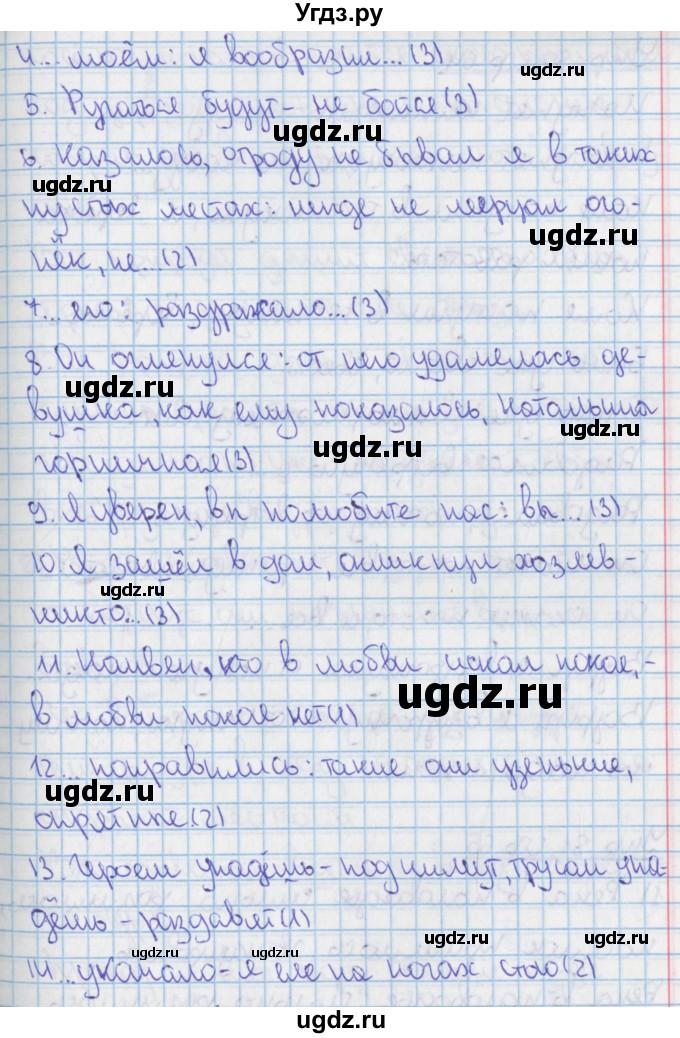 Угдз.ру
4... моём: я вообразил... (3)
ugdz.ru
5. Ругаться будут - не бойся (3)
ugdz.ru
6. Казалось, отроду не бывал я в таких
ugdz.ru
пустых местах: нигде не мерцал ого-
ugdz.ru
нёк, не... (2)
7... его: раздражало... (3)
ugdz.ru
8. Он оглянулся: от него удалялась де-
ugdz.ru
вушка, как ему показалось, Натальина
ugdz.ru
ugdz.ru
горничная (3)
9. Я уверен, вы полюбите нас: вы... (3)
10. Я зашёл в дом, окликнул хозяев -
ugdz.ru
никто... (3)
11. Наивен, кто в любви искал покоя, -
ugdz.ru
в любви покоя нет (1)
12... понравились: такие они узенькие,
ugdz.ru
опрятные (2)
13. Героем упадёшь - поднимут, трусом упа-
дёшь - раздавят (1)
ugdz.ru
ugdz.ru
ugdz.ru
14... укачало - я еле на ногах стою (2)
ugdz.ru